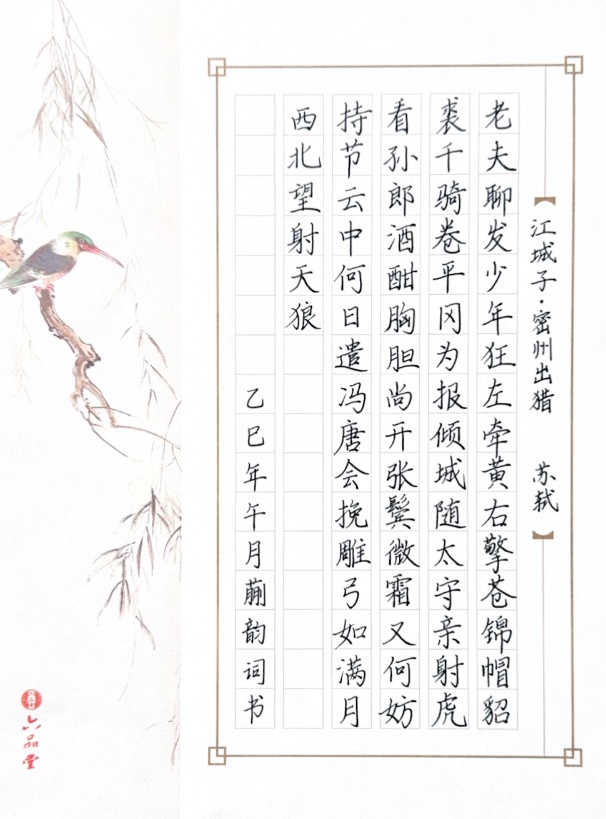 【江城子·密州出猎 苏轼】
老夫聊发少年狂左牵黄右擎苍锦帽貂
裘千骑卷平冈为报倾城随太守亲射虎
看孙郎酒酣胸胆尚开张鬓微霜又何妨
持节云中何日遣冯唐会挽雕弓如满月
西北望射天狼
乙巳年午月韵词书
六品堂